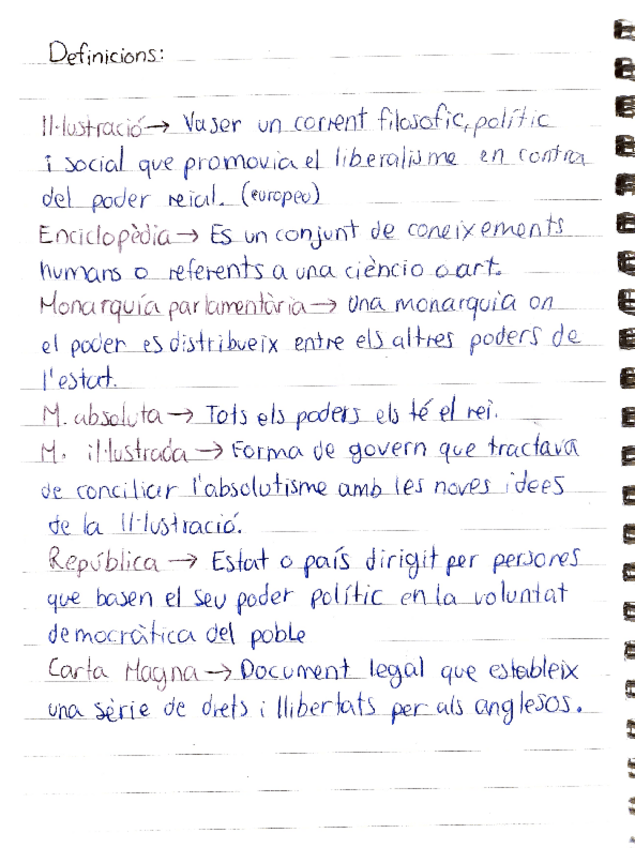 Definicions:
Il·lustració → Va ser un corrent filosofic, polític
i social que promovia el liberalisme en contra
del poder reial. (europeo)
Enciclopèdia → Es un conjunt de coneixements
humans o referents a una ciència o art.
Monarquía parlamentària → Una monarquia on
el poder es distribueix entre els altres poders de
l'estat.
M. absoluta → Tots els poders els té el rei.
M. il·lustrada → Forma de govern que tractava
de conciliar l'absolutisme amb les noves idees
de la Il·lustració.
República → Estat o país dirigit per persones
que basen el seu poder polític en la voluntat
democràtica del poble
Carta Magna → Document legal que estableix
una sèrie de drets i llibertats per als anglesos.